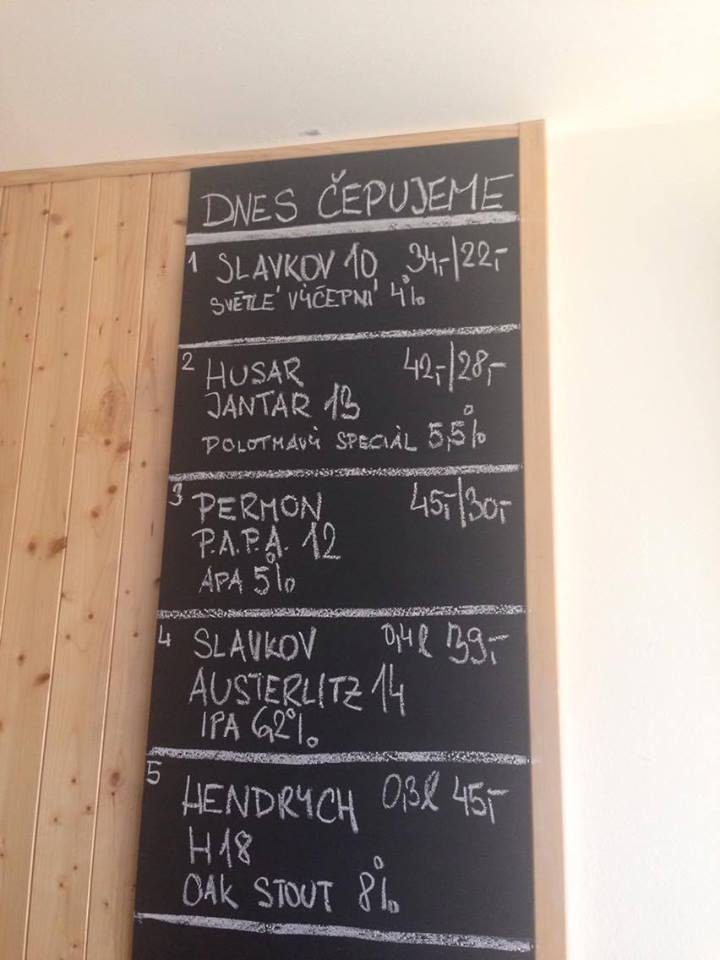 DNES ČEPUJEME
1 SLAVKOV 10 34,-/22,-
SVĚTLÉ VÝČEPNÍ 4%
2 HUSAR 42,-/28,-
JANTAR 13
POLOTMAVÝ SPECIÁL 5,5%
3 PERMON 45,-/30,-
P.A.P.A. 12
APA 5%
4 SLAVKOV 0,4l 39,-
AUSTERLITZ 14
IPA 6,2%
5 HENDRYCH 0,3l 45,-
H18
OAK STOUT 8%